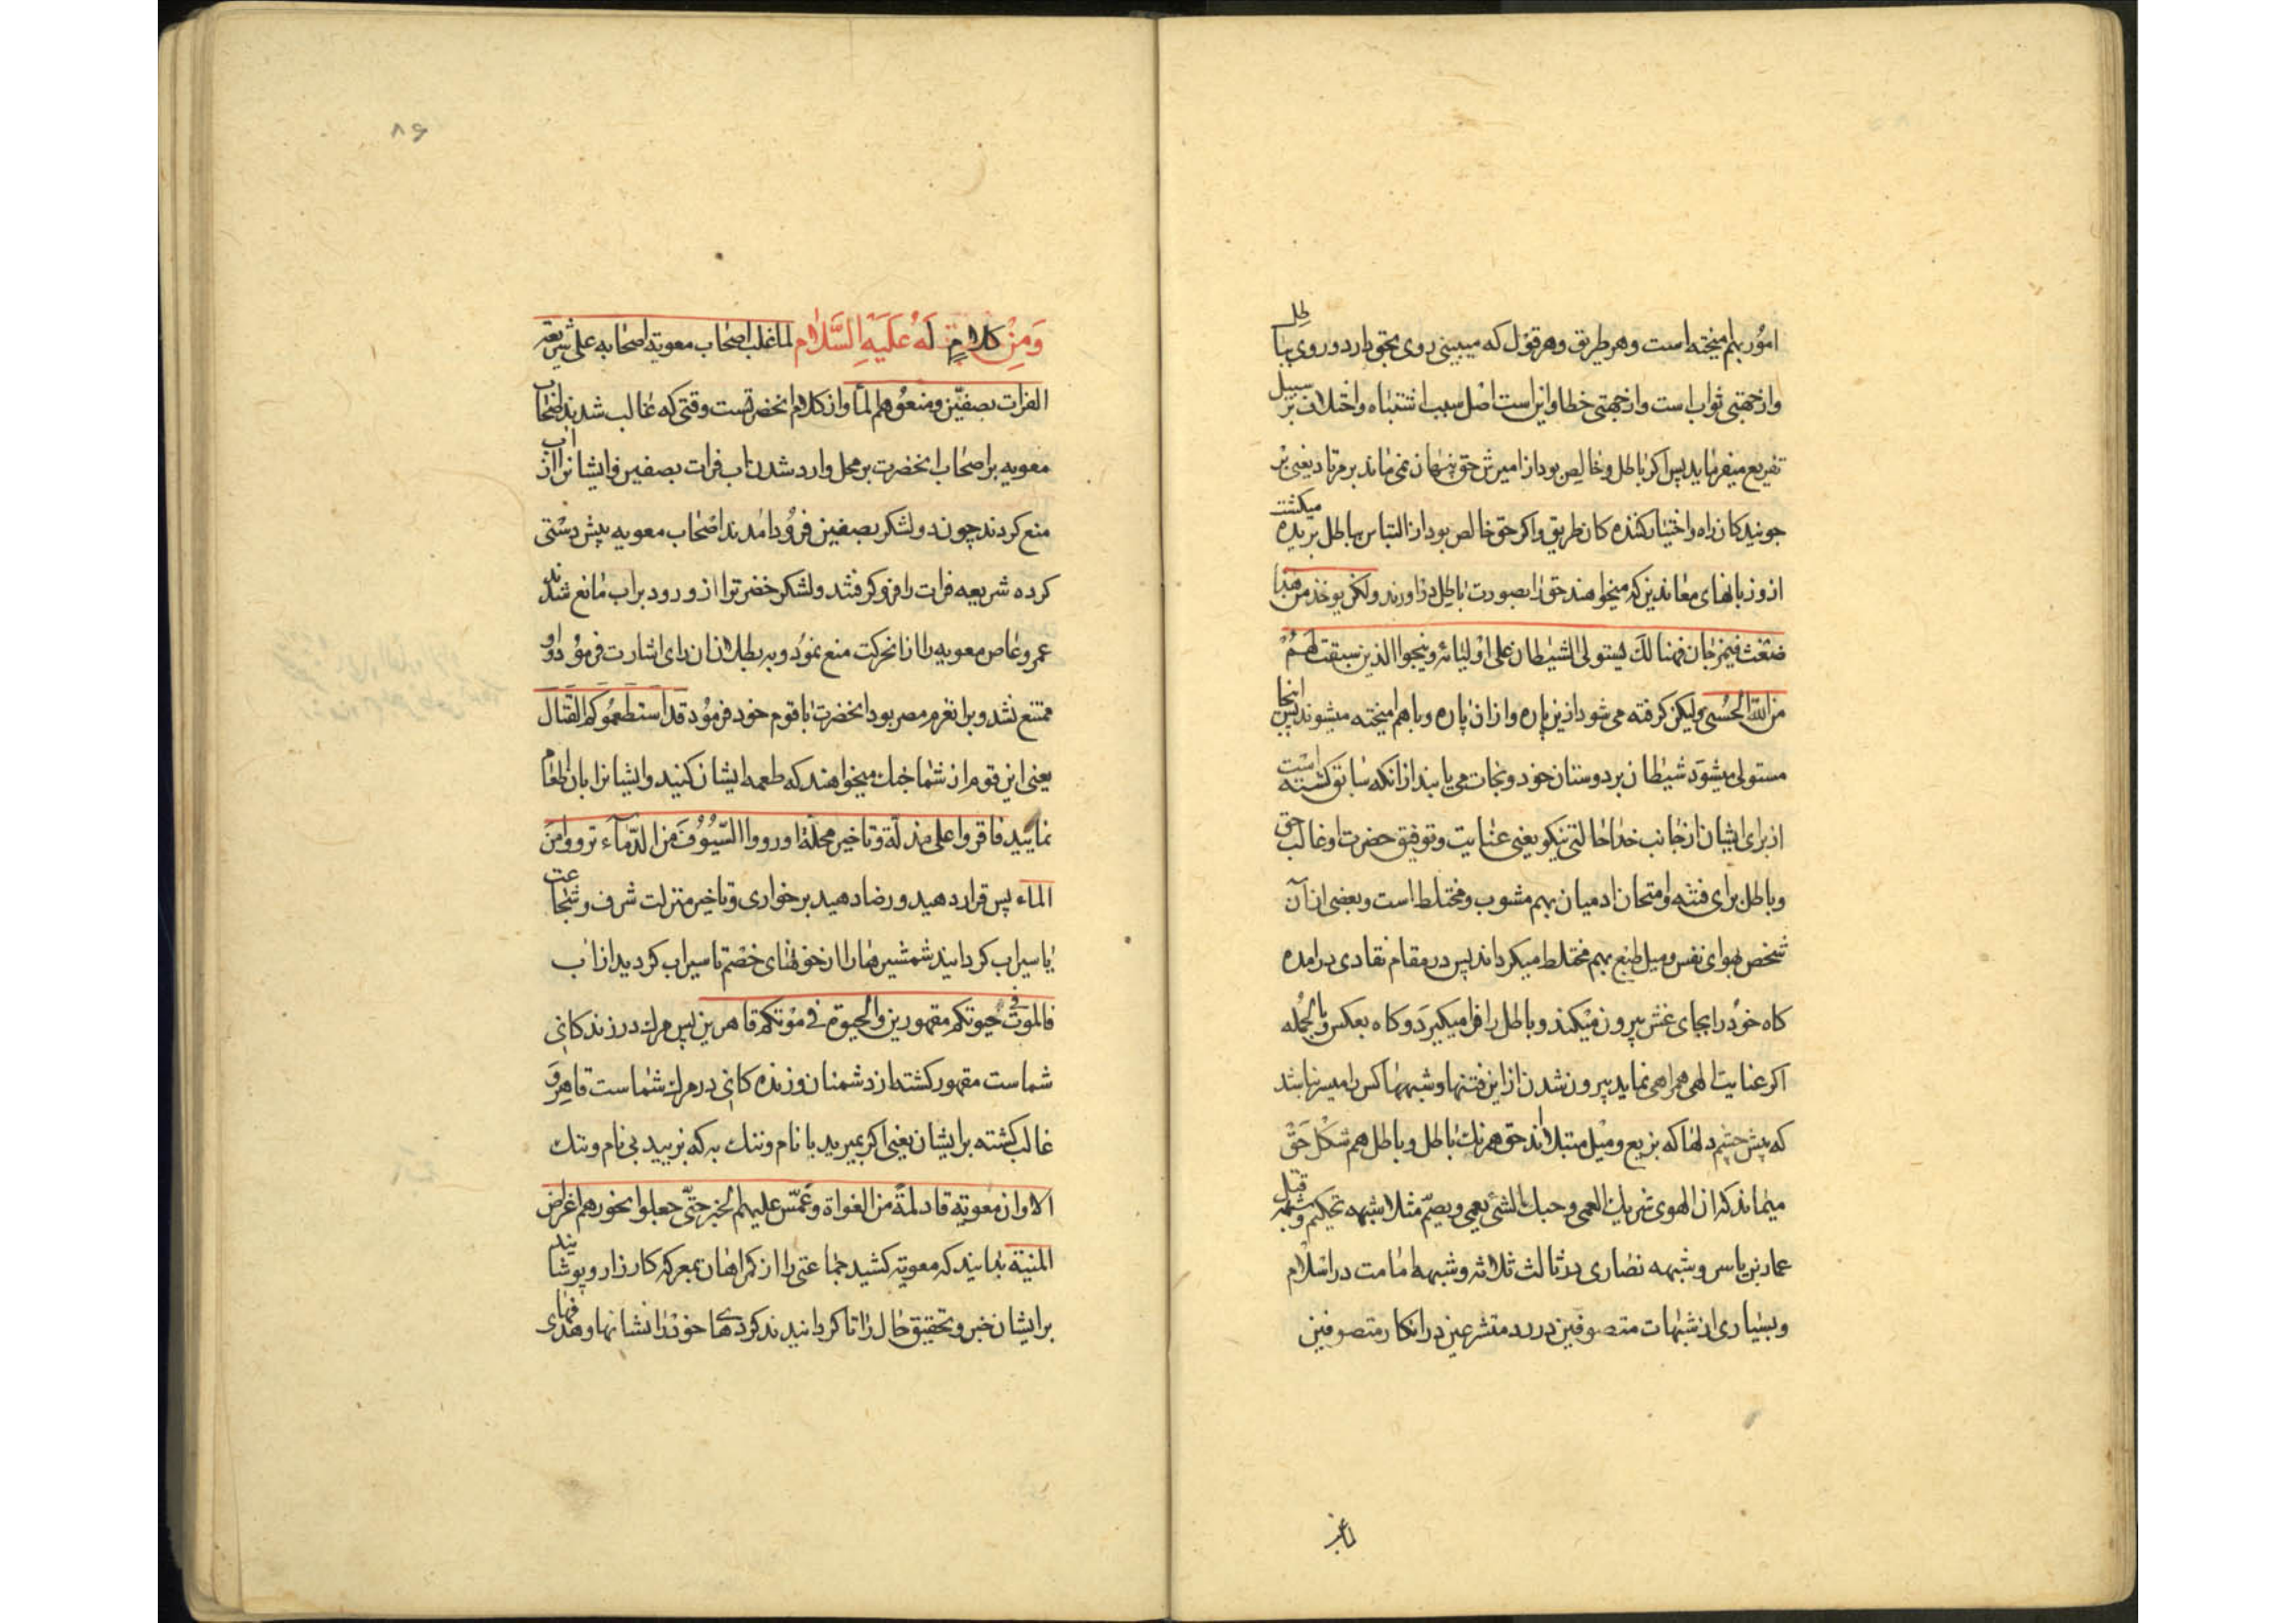 امور بهم امیخته است و هر طریق و هر قول که میبینی روی بحق دارد و روی بباطل
و از جهتی ثواب است و از جهتی خطا و این است اصل سبب اشتباه و اختلاف بر سبیل
تفریع میفرماید پس اکر باطل و خالص بود از امیزش حق پنهان نمی ماند بر مرتاد یعنی بر
جویندکان راه و اختیار کننده کان طریق و اکر حق خالص بود از التباس بباطل بریده میکشت
ازو زبانهای معاندین که میخواهند حق را بصورت باطل دراورند ولکن یوخذ من هذا
ضغث فیمزجان فهنالک یستولی الشیطان علی اولیائه و ینجوا الذین سبقت لهم
من الله الحسنی ولیکن کرفته می شود ازین پاره و ازان پاره و باهم امیخته میشوند پس اینجا
مستولی میشود شیطان بر دوستان خود و نجات می یابند از انکه سابق کشته است
از برای ایشان از جانب خدا حالتی نیکو یعنی عنایت و توفیق حضرت او غالب حق
و باطل برای فتنه و امتحان ادمیان بهم مشوب و مختلط است و بعضی از آن
شخص بهوای نفس و میل طبع بهم مختلط میکرداند پس در مقام نقادی درامده
کاه خود را بجای غش بیرون میکند و باطل را فرا میکیرد و کاه بعکس و بالجمله
اکر عنایت الهی همراهی نماید بیرون شدن از این فتنها و شبهها کس را میسر نباشد
که پیش چشم دلها که بزیع و میل مبتلا اند حق همرنک باطل و باطل هم شکل حق
مینماند که ان الهوی شریک العمی و حبک الشئ یعمی و یصم مثلا شبهه تحکیم و شبهه قتل
عمار بن یاسر و شبهه نصاری در ثالث ثلاثه و شبهه امامت در اسلام
و بسیاری از شبهات متصوفین در رد متشرعین در انکار متصوفین
۸۶
وَمِنْ كلامٍ لَهُ عَلَيْهِ السَّلَام لما غلب اصحاب معویة اصحابه علی شریعه
الفرات بصفین و منعوهم الماء و از کلام انحضرتست وقتی که غالب شدند اصحاب
معویه بر اصحاب انحضرت بر محل وارد شدن اب فرات بصفین و ایشانرا از اب
منع کردند چون دو لشکر بصفین فرود امدند اصحاب معویه پیش دستی
کرده شریعه فرات را فرو کرفتند و لشکر حضرترا از ورود بر اب مانع شدند
عمرو عاص معویه را از انحرکت منع نمود و به بطلان ان رای اشارت فرمود و او
ممتنع نشد و بر انغرم مصر بود انحضرت با قوم خود فرمود قد استطعموکم القتال
یعنی این قوم از شما جنک میخواهند که طعمه ایشان کنید و ایشانرا بان اطعام
نمایید فاقروا علی مذلة و تاخیر محلة او رووا السیوف من الدماء ترووا من
الماء پس قرار دهید و رضا دهید بر خواری و تاخیر منزلت شرف و شجاعت
یا سیراب کردانید شمشیرها را از خونهای خصم تا سیراب کردید از اب
فالموت فی حیوتکم مقهورین والحیوة فی موتکم قاهرین پس مرک در زندکانی
شماست مقهور کشته از دشمنان و زنده کانی در مرک شماست قاهر و
غالب کشته بر ایشان یعنی اکر بمیرید با نام و ننک به که بزیید بی نام و ننک
الا و ان معویة قاد لمة من الغواة و عمس علیهم الخبر حتی جعلوا نحورهم اغراض
المنیة بدانید که معویه کشید جماعتی را از کمراهان بمعرکه کارزار و پوشانید
بر ایشان خبر و تحقیق حال را تا کردانیدند کردنهای خود را نشانها و هدفهای